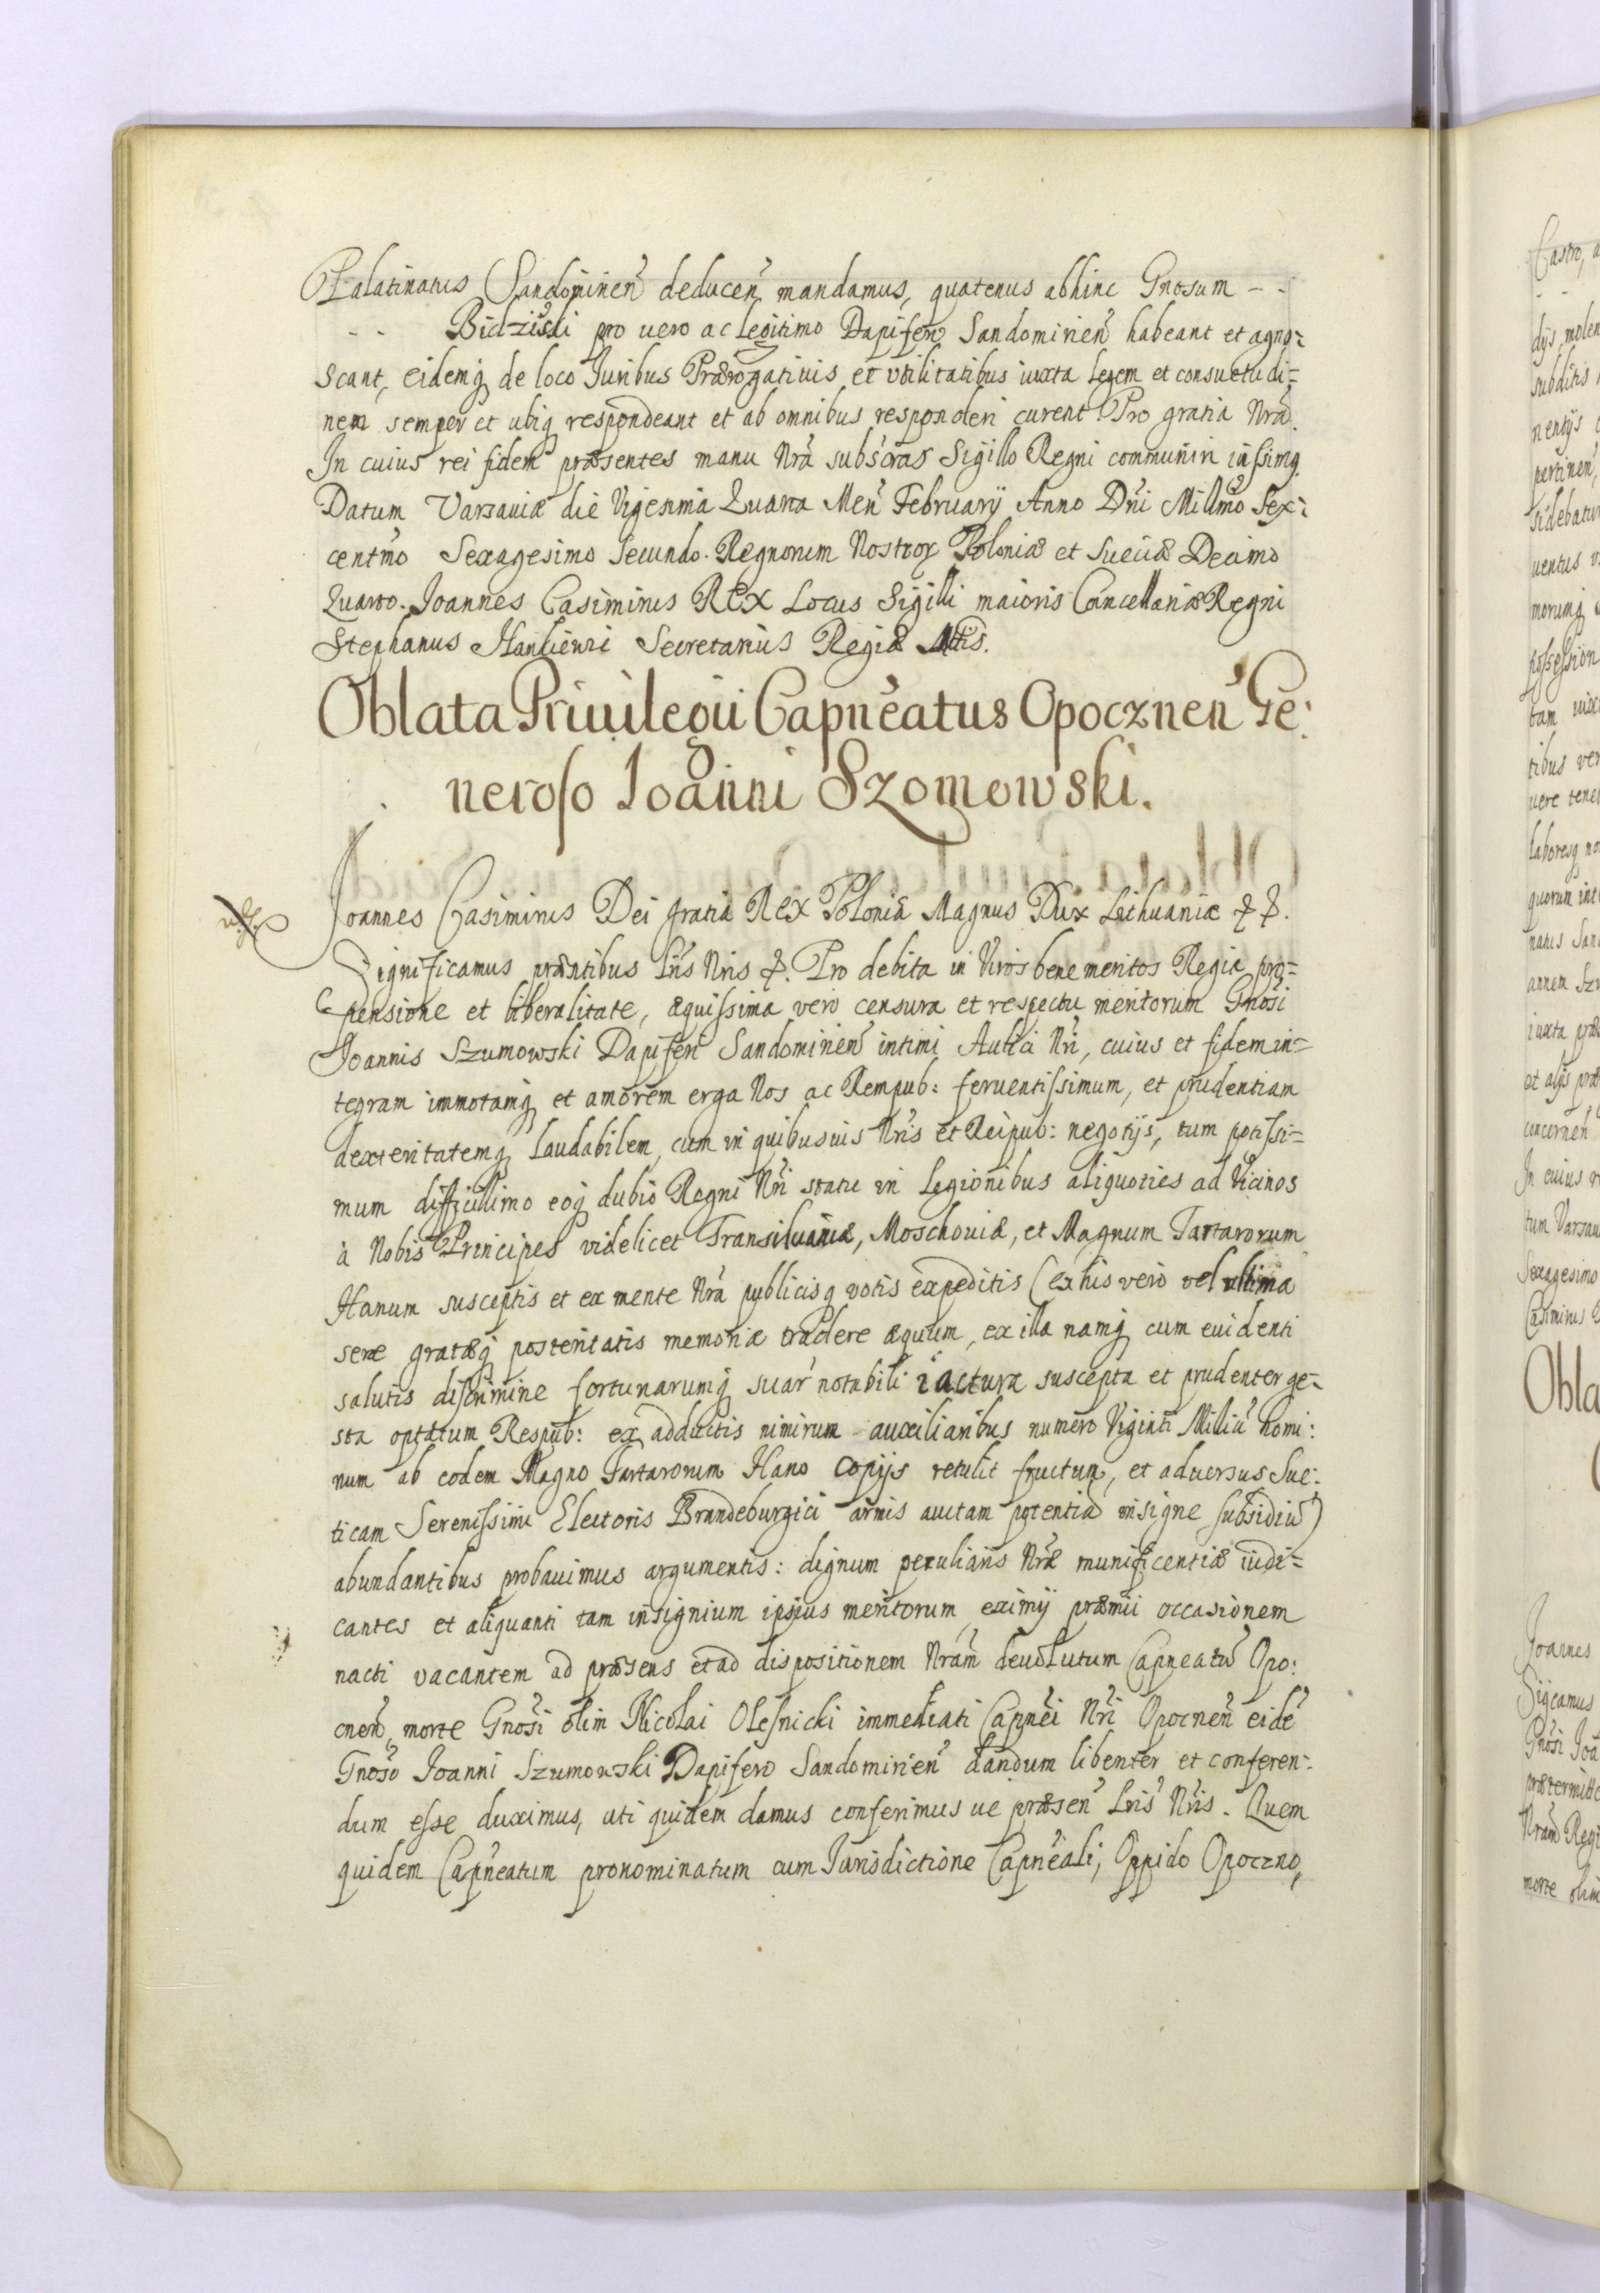 Palatinatus Sandomirien̄ deducen̄ mandamus, quatenus abhinc Gnosum - -
- - Bidziński pro uero ac legitimo Dapifero Sandomirien̄ habeant et agno=
scant, eidemq̨ de loco Juribus Prærogatiuis et vtilitatibus iuxta legem et consuetudi=
nem semper et ubiq̨ respondeant et ab omnibus responderi curent Pro gratia Nrā.
In cuius rei fidem præsentes manu Nrā subscras Sigillo Regni communiri iussimq̨
Datum Varsauiæ die Vigesima Quarta Men̄ February Anno Dn̄i Millmo Sex=
centmo Sexagesimo Secundo. Regnorum Nostror̨ Poloniæ et Sueciæ Decimo
Quarto. Joannes Casimirus REX Locus Sigilli maioris Cancellariæ Regni
Stephanus Hankiewi Secretarius Regiæ Mttis.
Oblata Priuilegii Capn̄eatus Opocznen̄ Ge:
neroso Joanni Szomowski.
Joannes Casimirus Dei gratia REX Poloniæ Magnus Dux Lithuaniæ & &.
Significamus præntibus Lrīs Nrīs &. Pro debita in Viros bene meritos Regia pro=
pensione et liberalitate, æquissima vero censura et respectu meritorum Gnōsi
Joannis Szumowski Dapiferi Sandomirien̄ intimi Aulici Nrī, cuius et fidem in=
tegram immotamq̨ et amorem erga Nos ac Rempub: feruentissimum, et prudentiam
dexteritatemq̨ laudabilem, cum in quibusuis Nrīs et Reipub: negotijs, tum potissi=
mum difficillimo eoq̨ dubio Regni Nrī statu in Legionibus aliquoties ad Vicinos
à Nobis Principes videlicet Transiluaniæ, Moschouiæ, et Magnum Tartarorum
Hanum susceptis et ex mente Nrā publicisq̨ votis expeditis (ex his vero vel ultima
seræ gratæq̨ posteritatis memoriæ tradere æquum, ex illa namq̨ cum euidenti
salutis discrimine fortunarumq̨ suar̄ notabili iactura suscepta et prudenter ge=
sta optatum Respub: ex adductis nimirum auxiliaribus numero Viginti Milliū homi:
num ab eodem Magno Tartarorum Hano copijs retulit fructum, et aduersus Sue:
ticam Serenissimi Electoris Brandeburgici armis auctam potentiā insigne subsidiū)
abundantibus probauimus argumentis: dignum peculiaris Nrǣ munificentiæ iudi=
cantes et aliquanti tam insignium ipsius meritorum eximij præmii occasionem
nacti vacantem ad præsens et ad dispositionem Nrām deuolutum Capneatū Opo:
cnen̄, morte Gnōsi olim Nicolai Olesnicki immediati Capnēi Nrī Opocnen̄ eidē
Gnōso Joanni Szumowski Dapifero Sandomirien̄ dandum libenter et conferen=
dum esse duximus, uti quidem damus conferimus ue præsen̄ Lrīs Nrīs. Quem
quidem Capn̄eatum pronominatum cum Jurisdictione Capn̄eali, Oppido Opoczno,